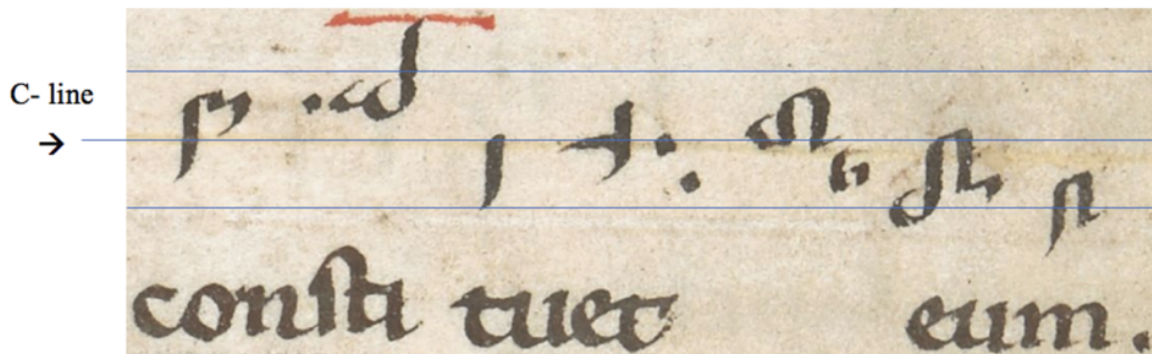 C- line
→
consti tuet eum.